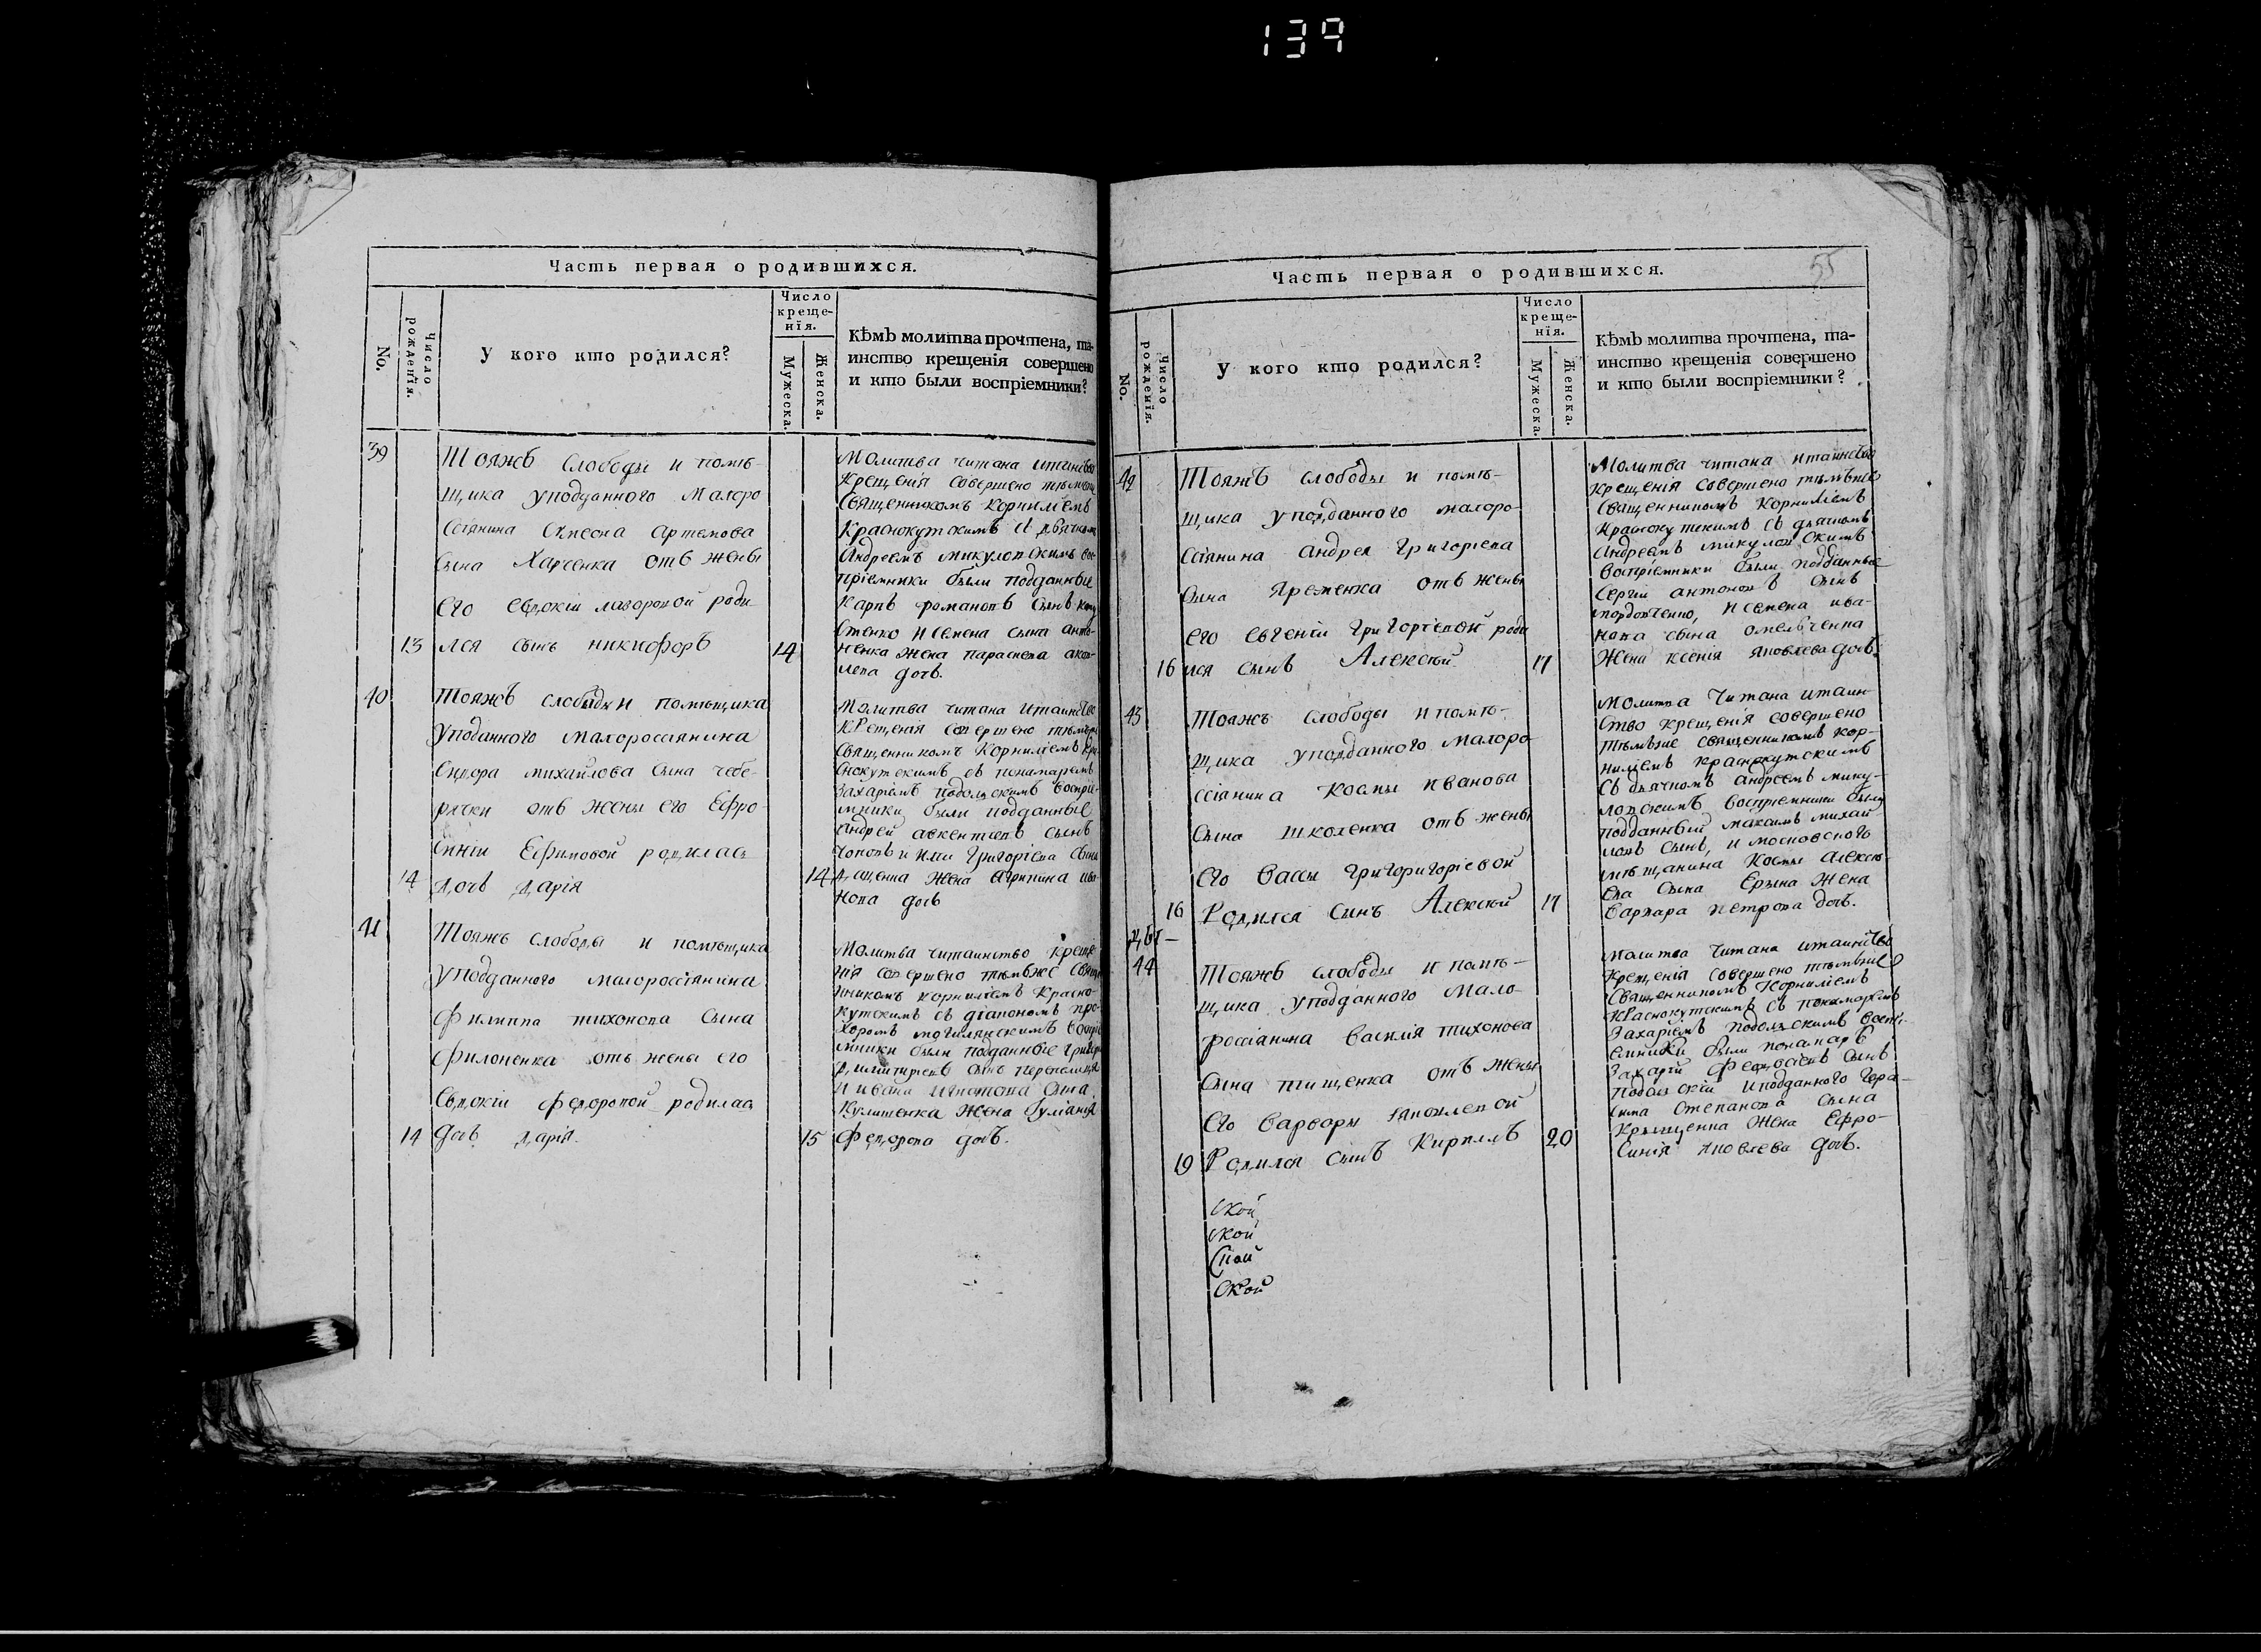 139
Часть первая о родившихся.
No.
Число рожденія.
У кого кто родился?
Число
креще-
нія.
Мужеска.
Женска.
Кѣмъ молитва прочтена, та-
инство крещенія совершено
и кто были воспріемники?
39
Тояжъ слободы и помѣ-
щика уподданного Малоро
ссіянина Симеона Артемова
сына Харченка отъ жены
его Евдокіи лазоровой роди
13 лся сынъ никифоръ 14
Молитва читана итаинство
Крещенія совершено тѣмъже
Священникомъ Корниліемъ
Краснокутскимъ съ дьячкомъ
Андреемъ микуловскимъ вос-
пріемники были подданные
Карпъ романовъ сынъ
и семена сына анто-
ненка жена параскева
дочь.
40
Тояжъ слободы и помѣщика
Уподанного малороссіянина
Сидора михайлова сына чебе-
рячки отъ жены его Ефро-
синіи Ефимовой родилась
14 дочь дарія 14
Молитва читана итаинство
Крещенія совершено тѣмъже
Священникомъ Корниліемъ Кра-
снокутскимъ съ пономаремъ
Захаріемъ подольскимъ воспріе-
мники были подданные
Андрей авксентіевъ сынъ
григоріева сына
жена агрипина ива-
нова дочь
41
Тояжъ слободы и помѣщика
Уподданного малороссіянина
Филиппа тихонова сына
филоненка отъ жены его
Евдокіи федоровой родилась
14 дочь дарія. 15
Молитва читаинство креще
нія совершено тѣмъже свяще
нникомъ корниліемъ красно-
кутскимъ съ діакономъ про-
хоромъ могилянскимъ воспріе
мники были подданные григорій
димитріевъ сынъ
и ивана игнатова сына
Кулишенка жена Іуліанія
федорова дочь.
Часть первая о родившихся.
55
No.
Число рожденія.
У кого кто родился?
Число
креще-
нія.
Мужеска.
Женска.
Кѣмъ молитва прочтена, та-
инство крещенія совершено
и кто были воспріемники?
42
Тояжъ слободы и помѣ-
щика уподданного малоро-
ссіянина андрея григоріева
сына яременка отъ жены
его евгеніи григоріевой роди
16 лся сынъ Алексѣй 17
Молитва читана итаинство
крещенія совершено тѣмъже
Священникомъ Корниліемъ
Краснокутскимъ съ дьячкомъ
Андреемъ микуловскимъ
воспріемники были подданные
Сергій антоновъ сынъ
и семена ива-
нова сына омельченка
жена ксенія яковлева дочь.
43
Тояжъ слободы и помѣ-
щика уподданного малоро
ссіянина космы иванова
сына школенка отъ жены
его вассы григоригоріевой
16 Родился сынъ Алексѣй 17
Молитва читана итаин-
ство крещенія совершено
тѣмъже священникомъ кор-
ниліемъ краснокутскимъ
съ дьячкомъ андреемъ мику-
ловскимъ воспріемники были
подданный максимъ михай-
ловъ сынъ, и московского
мѣщанина космы алексѣ-
ева сына жена
варвара петрова дочь.
44
Тояжъ слободы и помѣ-
щика уподданного мало-
россіянина василія тихонова
сына тищенка отъ жены
его варвары яковлевой
19 Родился сынъ Кириллъ 20
Молитва читана итаинство
крещенія совершено тѣмъже
священникомъ корниліемъ
краснокутскимъ съ пономаремъ
Захаріемъ подольскимъ воспрі-
емники были пономарь
Захарій федосіевъ сынъ
подольскій иподданного гера-
сима степанова сына
крыщенка жена ефро-
синія яковлева дочь.
ской
ской
ской
ской